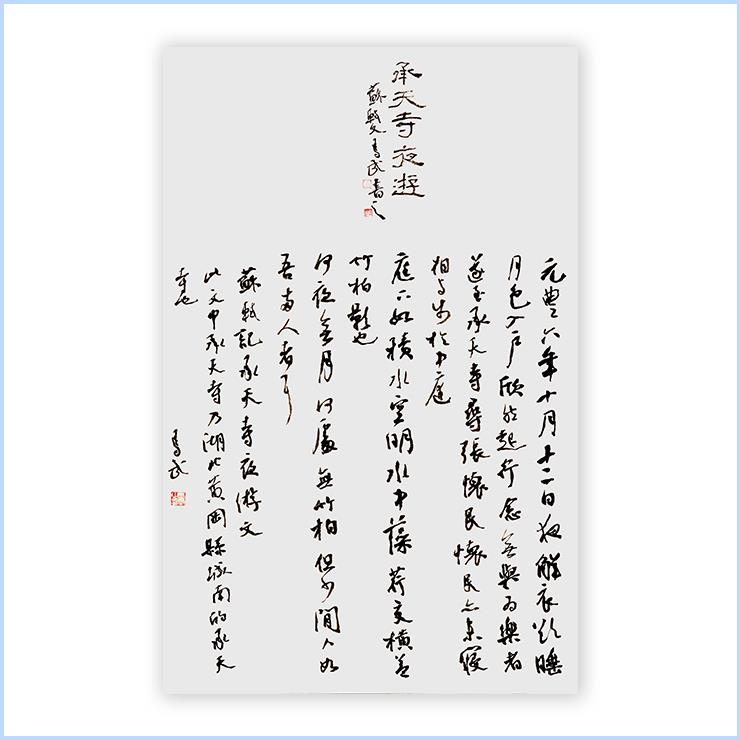 承天寺夜遊
蘇軾文 馬武書之
元豐六年十月十二日夜解衣欲睡
月色入戶欣然起行念無與為樂者
遂至承天寺尋張懷民懷民亦未寢
相與步於中庭
庭下如積水空明水中藻荇交橫蓋
竹柏影也
何夜無月何處無竹柏但少閒人如
吾兩人者耳
蘇軾記承天寺夜游文
此文中承天寺乃湖北黃岡縣城南的承天
寺也
馬武